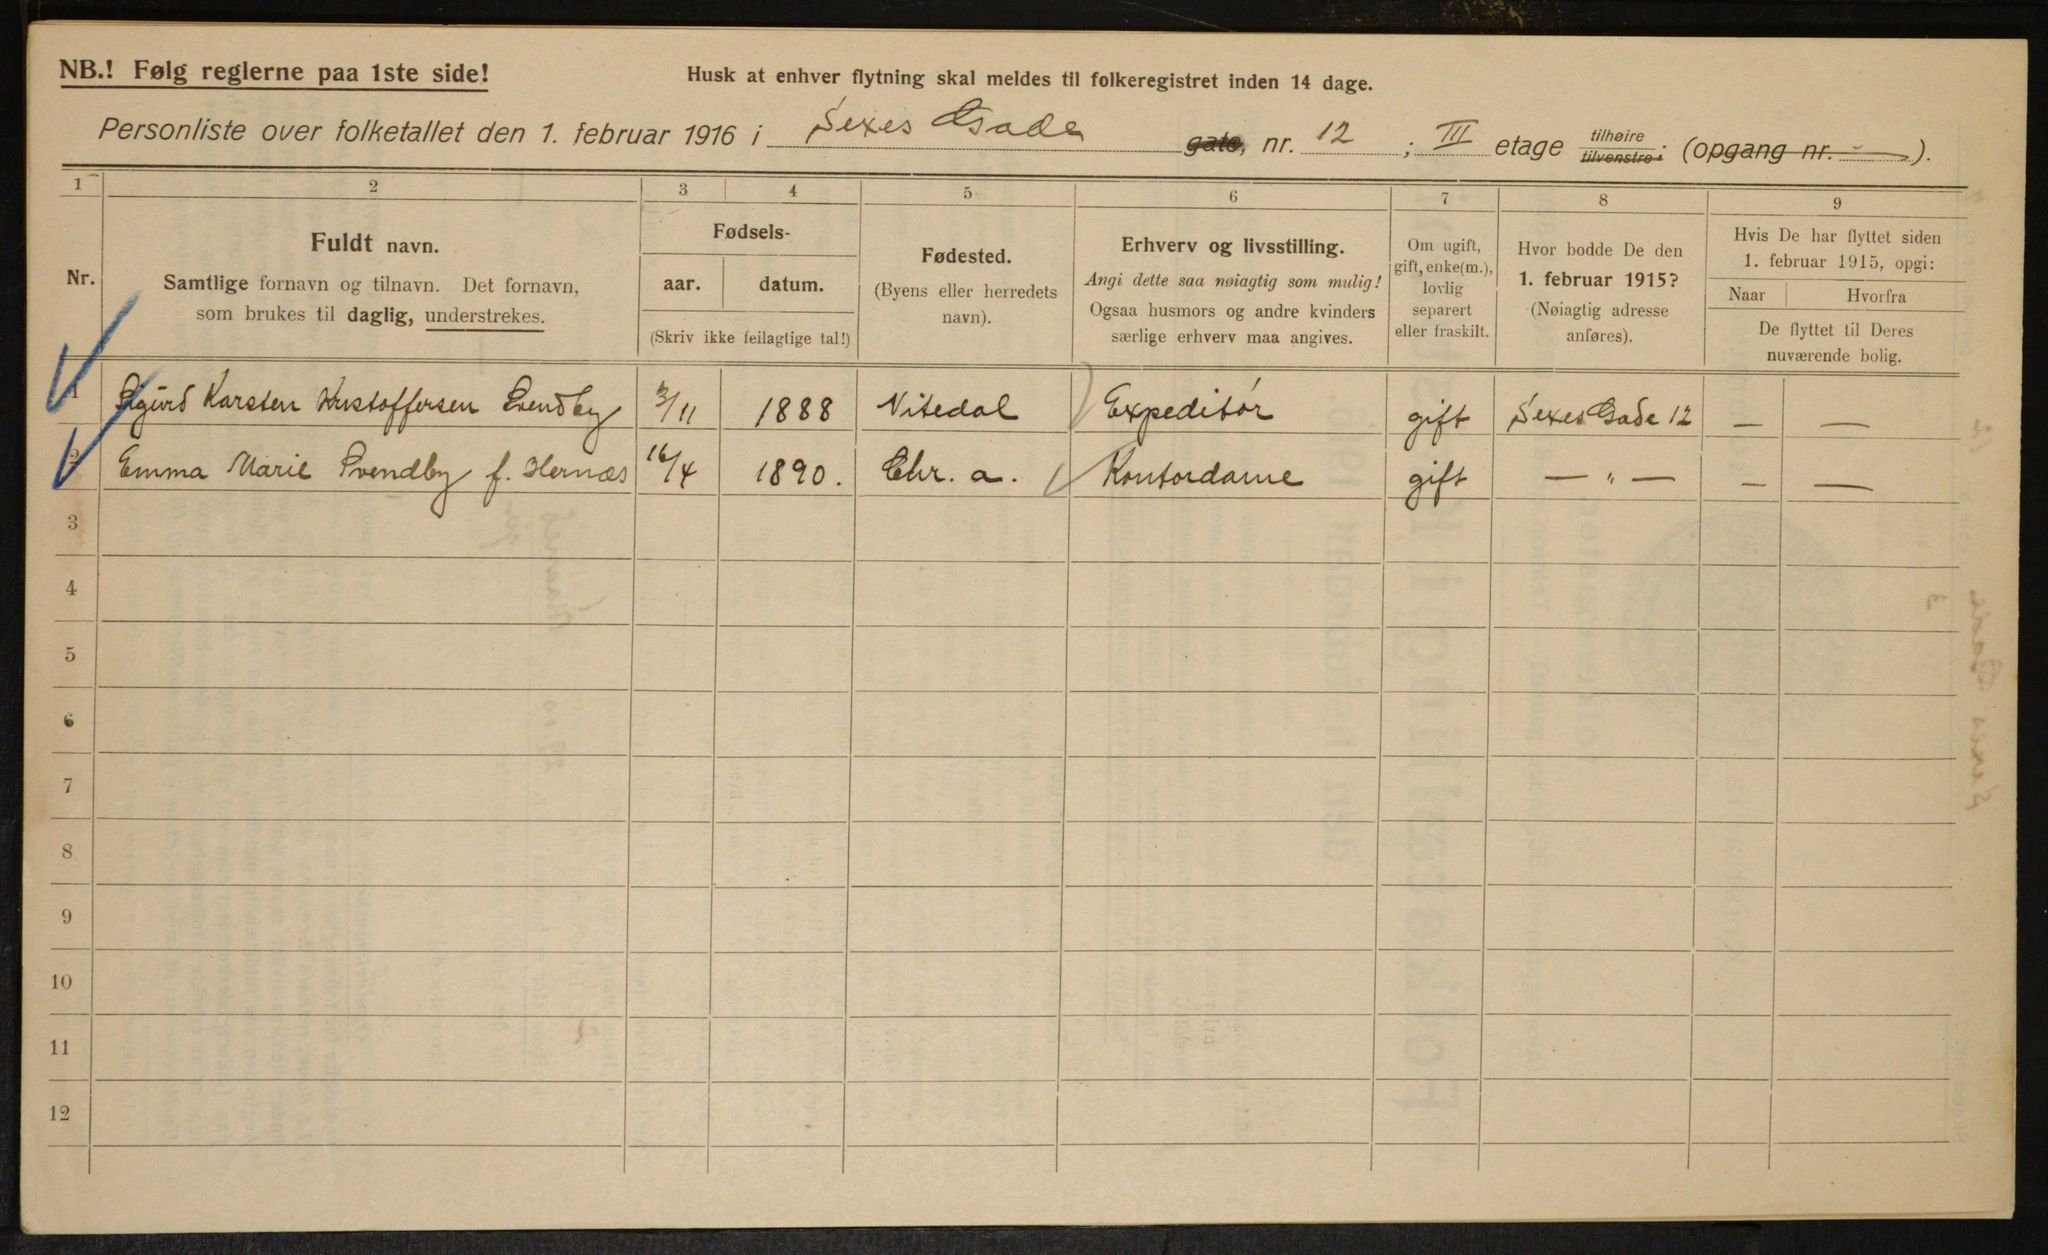 NB.! Følg reglerne paa 1ste side!
Husk at enhver flytning skal meldes til folkeregistret inden 14 dage.
Personliste over folketallet den 1. februar 1916 i Sexes Gade gate, nr. 12 ; III etage tilhøire tilvenstre; (opgang nr. ).
1 2 3 4 5 6 7 8 9
Nr.
Fuldt navn.
Samtlige fornavn og tilnavn. Det fornavn,
som brukes til daglig, understrekes.
Fødsels-
aar. datum.
(Skriv ikke feilagtige tal!)
Fødested.
(Byens eller herredets
navn).
Erhverv og livsstilling.
Angi dette saa nøiagtig som mulig!
Ogsaa husmors og andre kvinders
særlige erhverv maa angives.
Om ugift,
gift, enke(m.),
lovlig
separert
eller fraskilt.
Hvor bodde De den
1. februar 1915?
(Nøiagtig adresse
anføres).
Hvis De har flyttet siden
1. februar 1915, opgi:
Naar Hvorfra
De flyttet til Deres
nuværende bolig.
1 Sigurd Karsten Kristoffersen Svendby 3/11 1888 Nitedal Expeditør gift Sexes Gade 12 — —
2 Emma Marie Svendby f. Hernæs 16/4 1890. Chr. a. Kontordame gift — " — — —
3
4
5
6
7
8
9
10
11
12